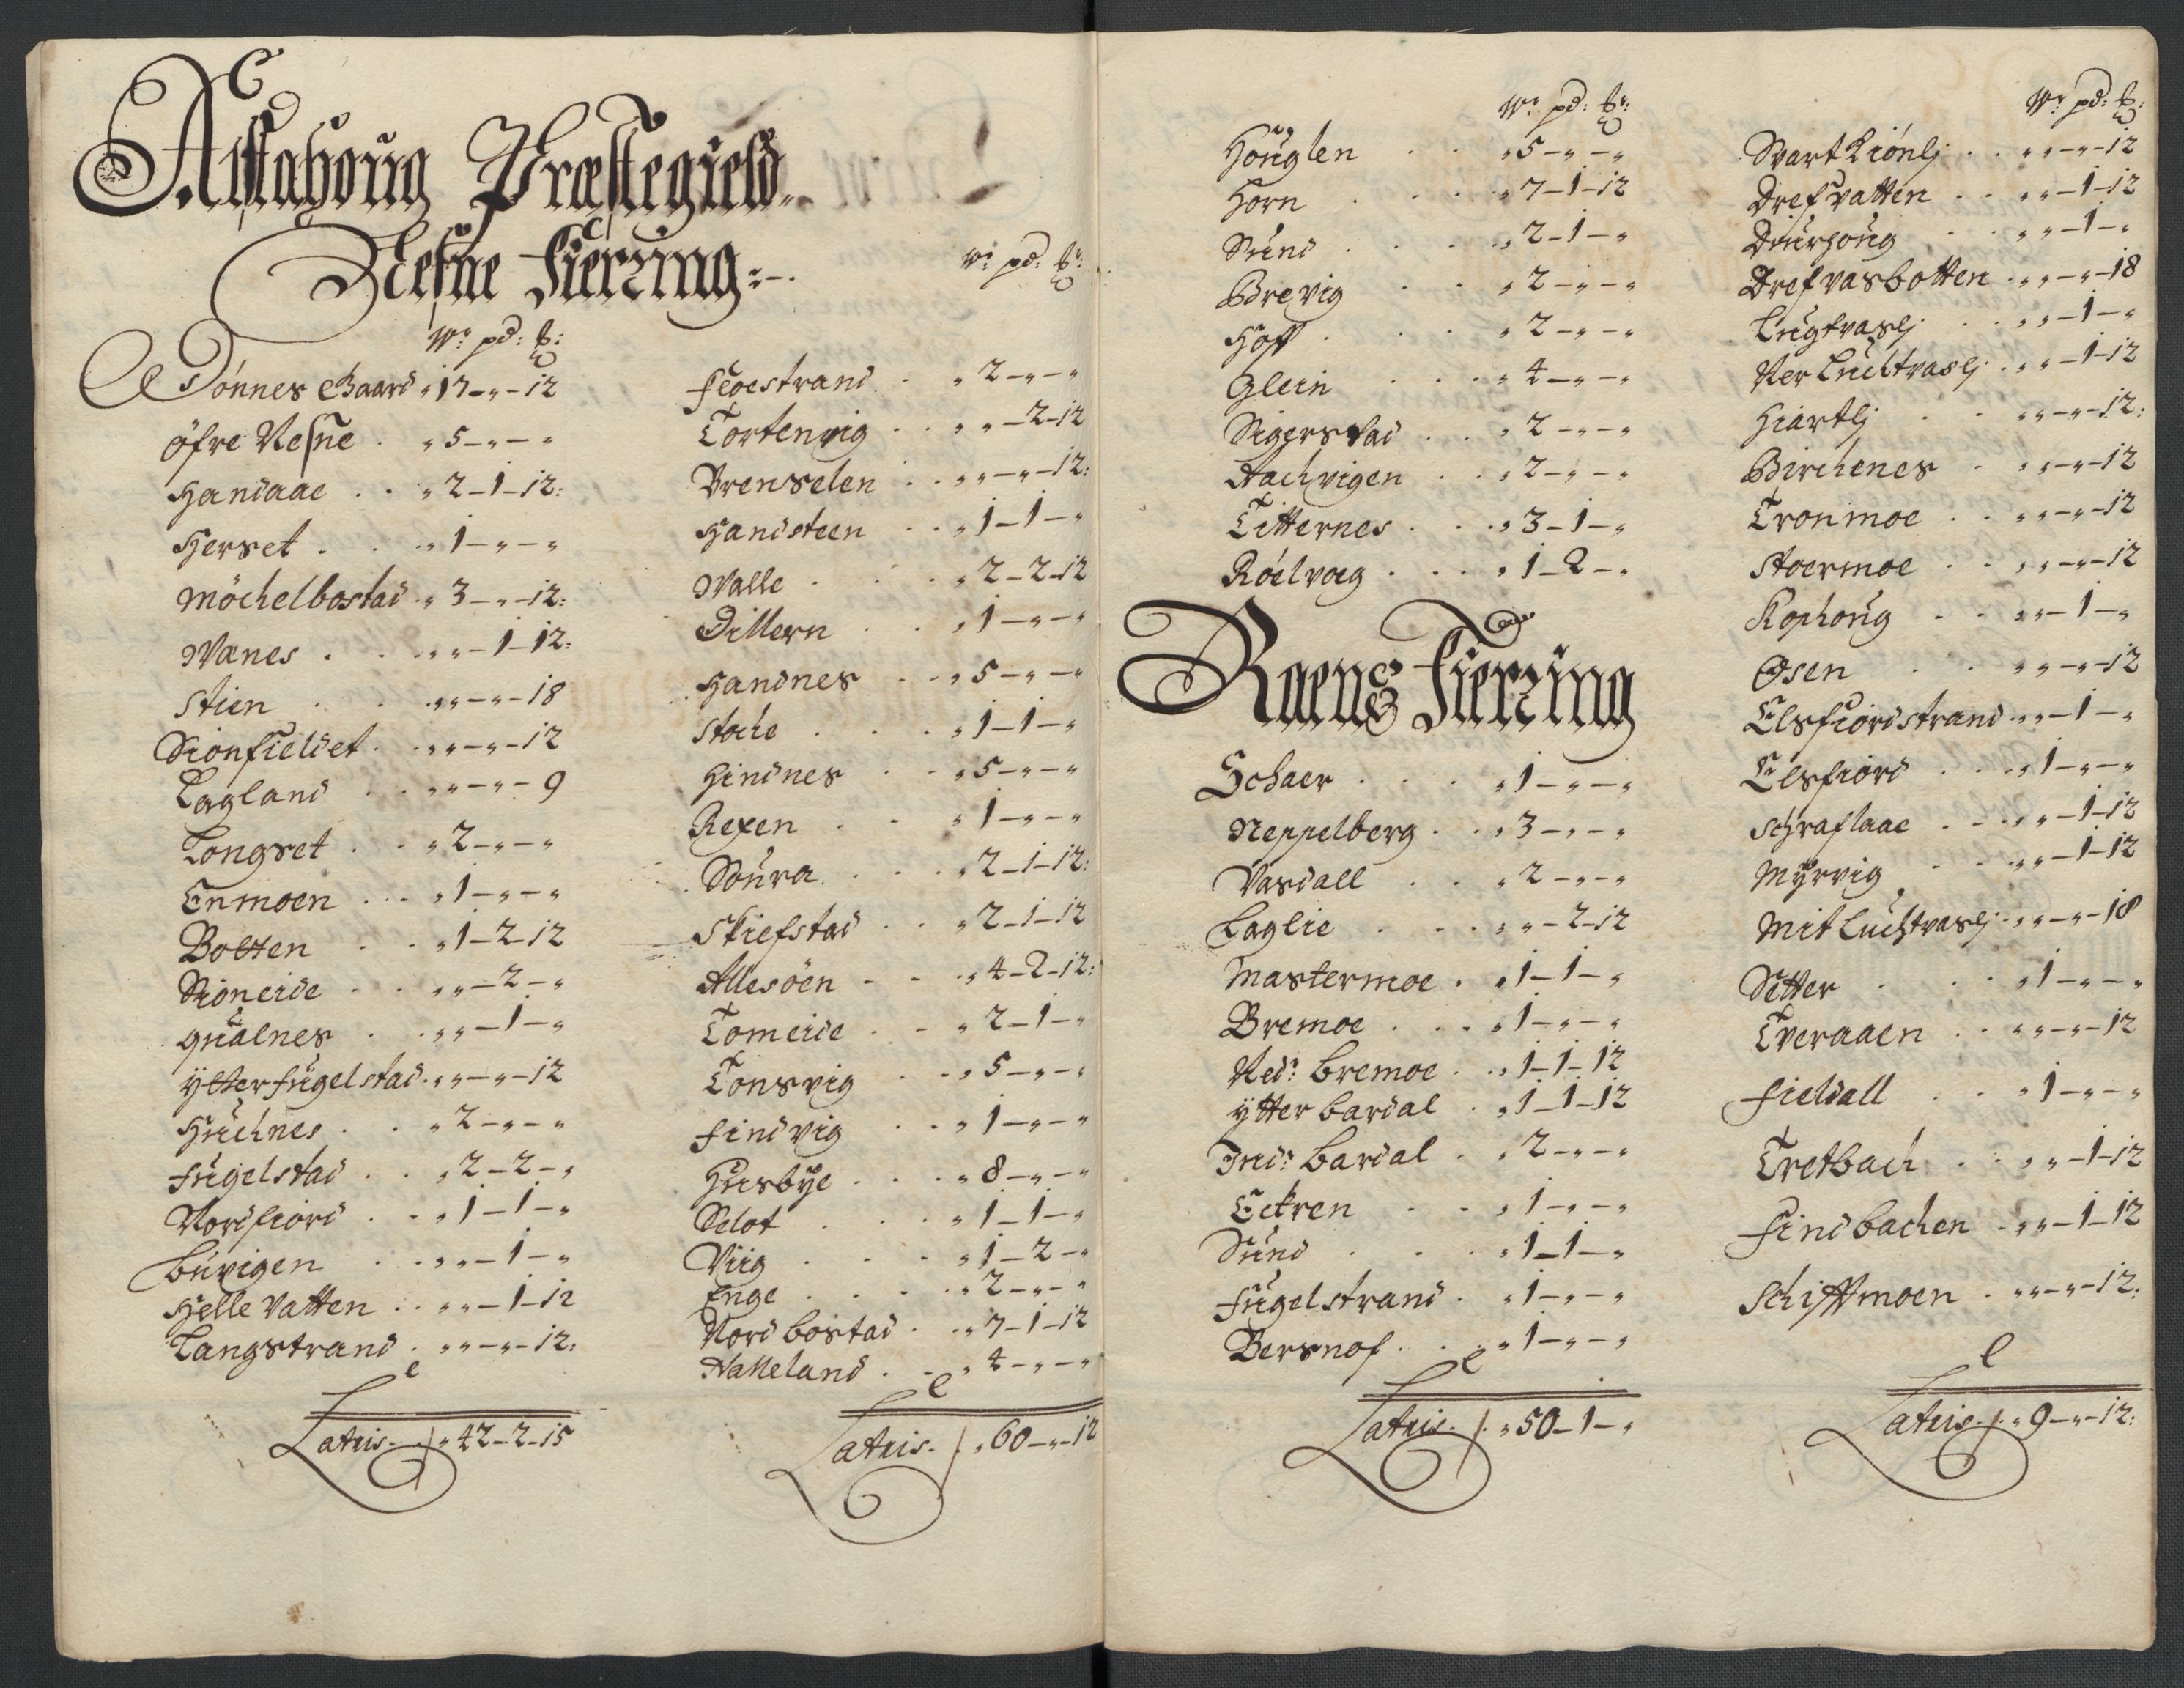 Alstahoug Præstegield
Nesne Fierring
Wr pd: lb:
Dönnes Gaard „ 17 - „ - 12
öfre Nesne . „ 5 - „ - „
Handaae . . „ 2 - 1 - 12:
Herset . . „ 1 - „ - „
Möchelbostad . „ 3 - „ - 12:
Wænes . . „ „ - 1 - 12:
Stien . . „ „ - „ - 18
Sionfieldet . „ „ - „ - 12
Lagland . . „ „ - „ - 9
Longset . . „ 2 - „ - „
Enmoen . . „ 1 - „ - „
Botten . . „ 1 - 2 - 12
Sioneide . . „ „ - 2 - „
qualnes . . „ „ - 1 - „
ÿtterfugelstad . „ „ - „ - 12
Huchnes . . „ 2 - „ - „
Fugelstad . . „ 2 - 2 - „
Nordfiord . . „ 1 - 1 - „
Buvigen . . „ „ - 1 - „
Helle Vatten . . „ „ - 1 - 12
Langstrand . „ „ - „ - 12:
Lateris . „ 42 - 2 - 15
Wr pd: lb:
Feoestrand . „ 2 - „ - „
Tortenvig . . „ „ - 2 - 12
Brenselen . . „ „ - „ - 12:
Handsteen . . „ 1 - 1 - „
Walle . . „ 2 - 2 - 12
Dillern . . „ 1 - „ - „
Handnes . . „ 5 - „ - „
Stoche . . „ 1 - 1 - „
Hindnes . . „ 5 - „ - „
Rexen . . „ 1 - „ - „
Soura . . „ 2 - 1 - 12:
Skiefstad . . „ 2 - 1 - 12
Allesöen . . „ 4 - 2 - 12:
Tomeide . . „ 2 - 1 - „
Tonsvig . . „ 5 - „ - „
Findvig . . „ 1 - „ - „
Husbÿe . . „ 8 - „ - „
Selot . . „ 1 - 1 - „
Viig . . „ 1 - 2 - „
Enge . . „ 2 - „ - „
Nordbostad . „ 7 - 1 - 12
Halleland . . „ 4 - „ - „
Lateris . „ 60 - „ - 12
Wr pd: lb:
Houglen . . „ 5 - „ - „
Horn . . „ 7 - 1 - 12
Sund . . „ 2 - 1 - „
Brevig . . „ 2 - „ - „
Hoff . . „ 2 - „ - „
Glein . . „ 4 - „ - „
Sigerstad . . „ 2 - „ - „
Aachvigen . . „ 2 - „ - „
Titternes . . „ 3 - 1 - „
Röelvoeg . . „ 1 - 2 - „
Raens Fierring
Schaer . . „ 1 - „ - „
Neppelberg . . „ 3 - „ - „
Vasdall . . „ 2 - „ - „
Laglie . . „ „ - 2 - 12
Mastermoe . „ 1 - 1 - „
Bremoe . . „ 1 - „ - „
Ned: Bremoe . . „ 1 - 1 - 12
ÿtter bardal . „ 1 - 1 - 12
Ind: Bardal . „ 2 - „ - „
Eckren . . „ 1 - „ - „
Sund . . „ 1 - 1 - „
Fugelstrand . „ 1 - „ - „
Bersnof . . „ 1 - „ - „
Lateris . „ 50 - 1 - „
Wr pd: lb:
Svart Kiönlj . . „ „ - „ - 12
Drefvatten . . „ „ - 1 - 12
Diurhoug . . „ „ - 1 - „
Drefvasbotten . „ „ - „ - 18
Lugtvaslj . . „ „ - 1 - „
Ner Luchtvaslj . „ „ - 1 - 12
Hiartlj . . „ „ - „ - 12:
Birchenes . „ „ - „ - 12
Tronmoe . . „ „ - „ - 12
Stoermoe . . „ „ - „ - 12
Kophoug . . „ „ - 1 - „
Osen . . „ „ - „ - 12
Elsfiordstrand . „ „ - 1 - „
Elsfiord . . „ 1 - „ - „
Schraflaae . . „ „ - 1 - 12
Mÿrvig . . „ „ - 1 - 12
Mit Luchtvaslj . „ „ - „ - 18
Setter . . „ 1 - „ - „
Tveraaen . . „ „ - „ - 12
Fieldall . . „ 1 - „ - „
Tretbach . . „ „ - 1 - 12
Findbachen . „ „ - 1 - 12
Schiffmoen . „ „ - „ - 12:
Lateris . „ 9 - „ - 12: